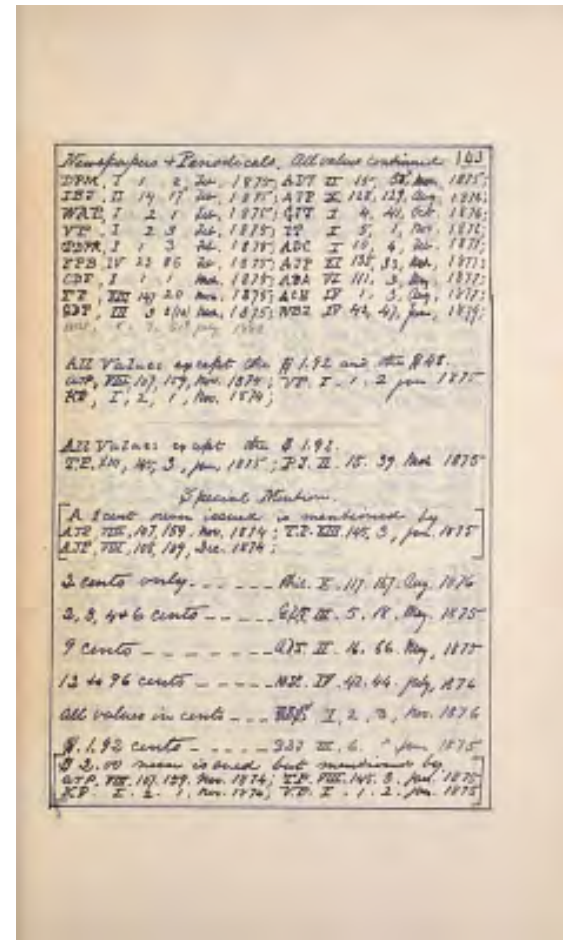 Newspapers & Periodicals. All values continued 143
DPM, I 1 2, Feb. 1875; ADT II 15, Mar. 1875;
IBJ, II 14 17 Feb. 1875; ATP X, 128, 129, Aug. 1876;
WRP, I 2 1 Feb. 1875; GTT I 4, 41, Oct. 1876;
VP I 2 3 Feb. 1875; TP I 5, 1, Nov. 1872;
I 1 3 Feb. 1875; ADC I 10, 4, Feb. 1877;
FPB IV 23 86 Feb. 1875; AJP XI 135, 33, Mch, 1877;
CDT, I 1 1 Mch, 1875; ABA VI 111, 3, May, 1877;
TP, XIII 147 20 Mar. 1875; ACM IV 1, 3, Aug, 1877;
GDT, III 3 Mch, 1875; WBZ IV 42, 47, June, 1879;
All Values except the $1.92 and the $48.
AJP, VIII, 107, 159, Nov. 1874; VP. I. 1. 2 Jan 1875
KP, I, 2, 1, Nov. 1874;
All Values except the $1.92.
T.P. XIII, 145, 3, Jan, 1875; P.J. II. 15. 39. Mch 1875
Special Mention.
[A 1 cent never issued is mentioned by
AJP, VIII, 107, 159. Nov. 1874; T.P. XIII. 145, 3, Jan, 1875
AJP, VIII, 108, 189, Dec. 1874;]
2 cents only _ _ _ _ _ Phil. X. 117. 167. Aug. 1876
2, 3, 4 & 6 cents _ _ _ _ III. 5. 18. May. 1875
9 cents _ _ _ _ _ _ _ II. 16. 66. May, 1875
12 to 96 cents _ _ _ _ IV. 42. 44. July, 1876
all values in cents _ _ _ I, 2, 3, Nov. 1876
$1.92 cents _ _ _ _ _ III. 6. " Jan. 1875
[$2.00 never issued but mentioned by
AJP. VIII. 107. 159. Nov. 1874; T.P. XIII. 145. 3. Jan. 1875
KP. I. 2. 1. Nov. 1874; V.P. I. 1. 2. Jan. 1875]